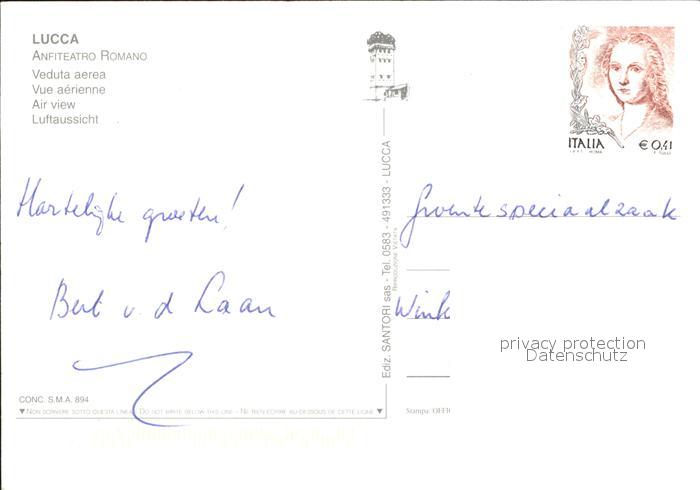 LUCCA
ANFITEATRO ROMANO
Veduta aerea
Vue aérienne
Air view
Luftaussicht
ITALIA
€ 0,41
Hartelijke groeten!
Bert v. d Laan
Ediz. SANTORI sas - Tel. 0583 - 491333 - LUCCA
RIPRODUZIONE VIETATA
Groente speciaalzaak
Wink
privacy protection
Datenschutz
CONC. S.M.A. 894
▼ NON SCRIVERE SOTTO QUESTA LINEA - DO NOT WRITE BELOW THIS LINE - NE RIEN ECRIRE AU-DESSOUS DE CETTE LIGNE ▼
Stampa: OFFI